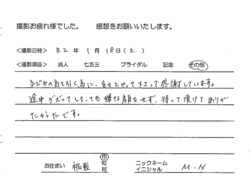 撮影お疲れ様でした。 感想をお願いいたします。
<撮影日時> R2年 1月 18日(土)
<撮影項目> 成人 七五三 ブライダル 記念 その他
カジカの気を引く為に、色々とやって下さって感謝しています。
途中グズってしまっても嫌な顔をせず、待って頂けてありが
たかったです。
お住まい 市 町 村 ニックネーム イニシャル M・N